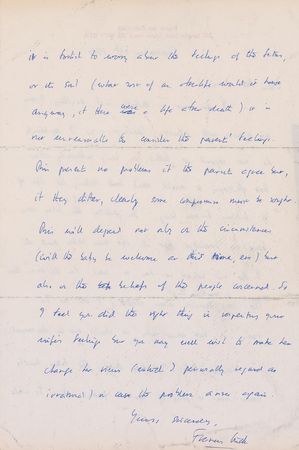 it is foolish to worry about the feelings of the fetus,
or its soul (what sort of an afterlife would it have
anyway, if there were a life after death) it is
not unreasonable to consider the parents' feelings.
This presents no problems if the parents agree but,
if they differ, clearly some compromise must be sought.
This will depend not only on the circumstances
(will the baby be welcome at this time, etc) but
also on the beliefs of the people concerned. So
I feel you did the right thing in respecting your
wife's feelings but you may well wish to make her
change her views (which I personally regard as
irrational) in case the problem arises again.
Yours sincerely,
Francis Crick